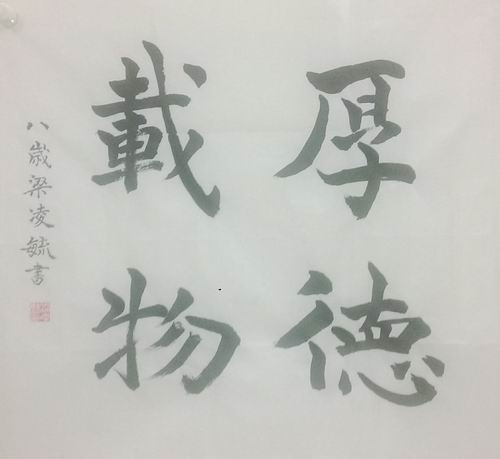 厚德
載物
八歲梁凌毓書